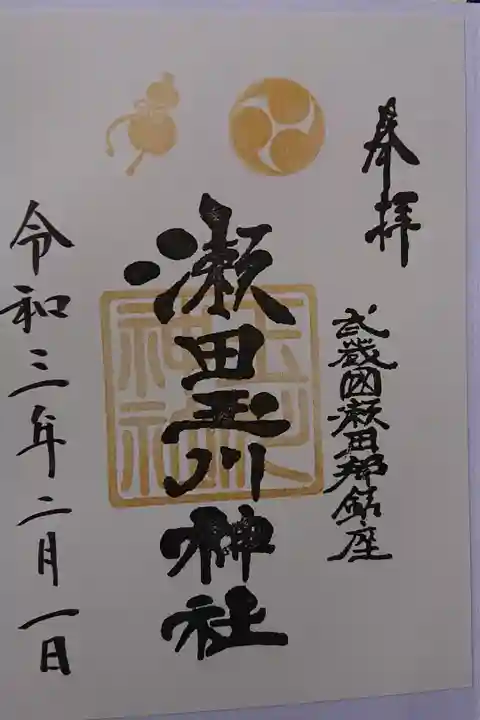 奉拝
武蔵國瀬田郷鎮座
瀬田玉川神社
玉川
神社
令和三年二月一日